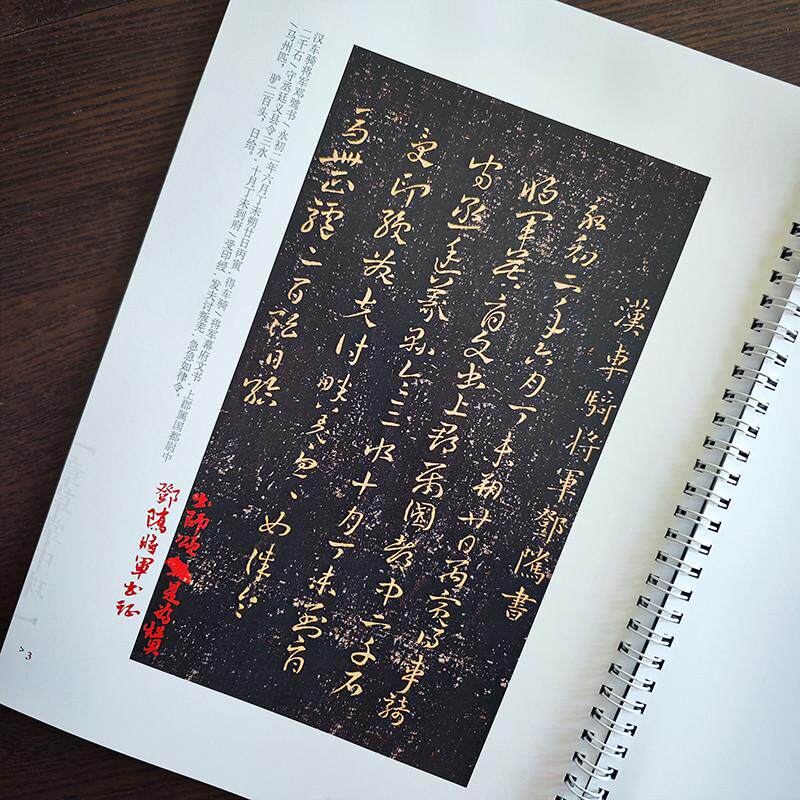 漢車騎將軍鄧隲書
永初二年六月丁未朔廿日丙寅得車騎
將軍莫府文書上郡屬國都尉中二千石
守丞廷義縣令三水十月丁未到府
受印綬發夫討畔羌急急如律令
馬卌匹驢二百頭日給
汉车骑将军邓骘书/永初二年六月丁未朔廿日丙寅,得车骑/将军幕府文书,上郡属国都尉中
二千石/守丞廷义县令三水,十月丁未到府/受印绶,发夫讨叛羌,急急如律令,
/马州匹,驴二百头,日给。
出師頌是为賛
鄧隲將軍出征
>3